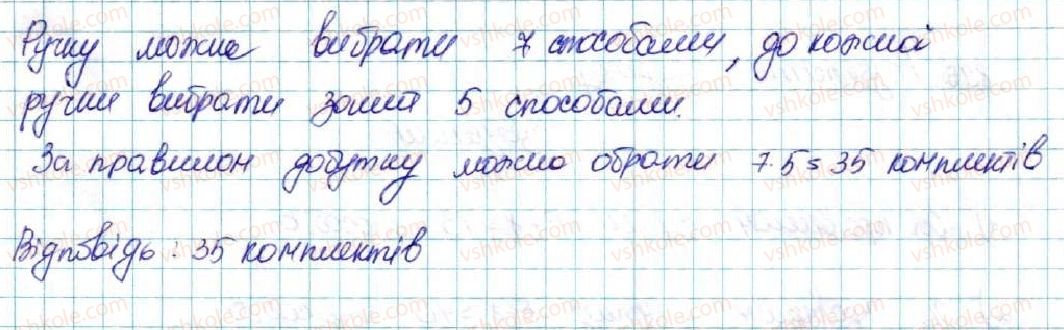 Ручку можна вибрати 7 способами, до кожної
ручки вибрати зошит 5 способами.
За правилом добутку можно обрати 7·5=35 комплектів
Відповідь: 35 комплектів